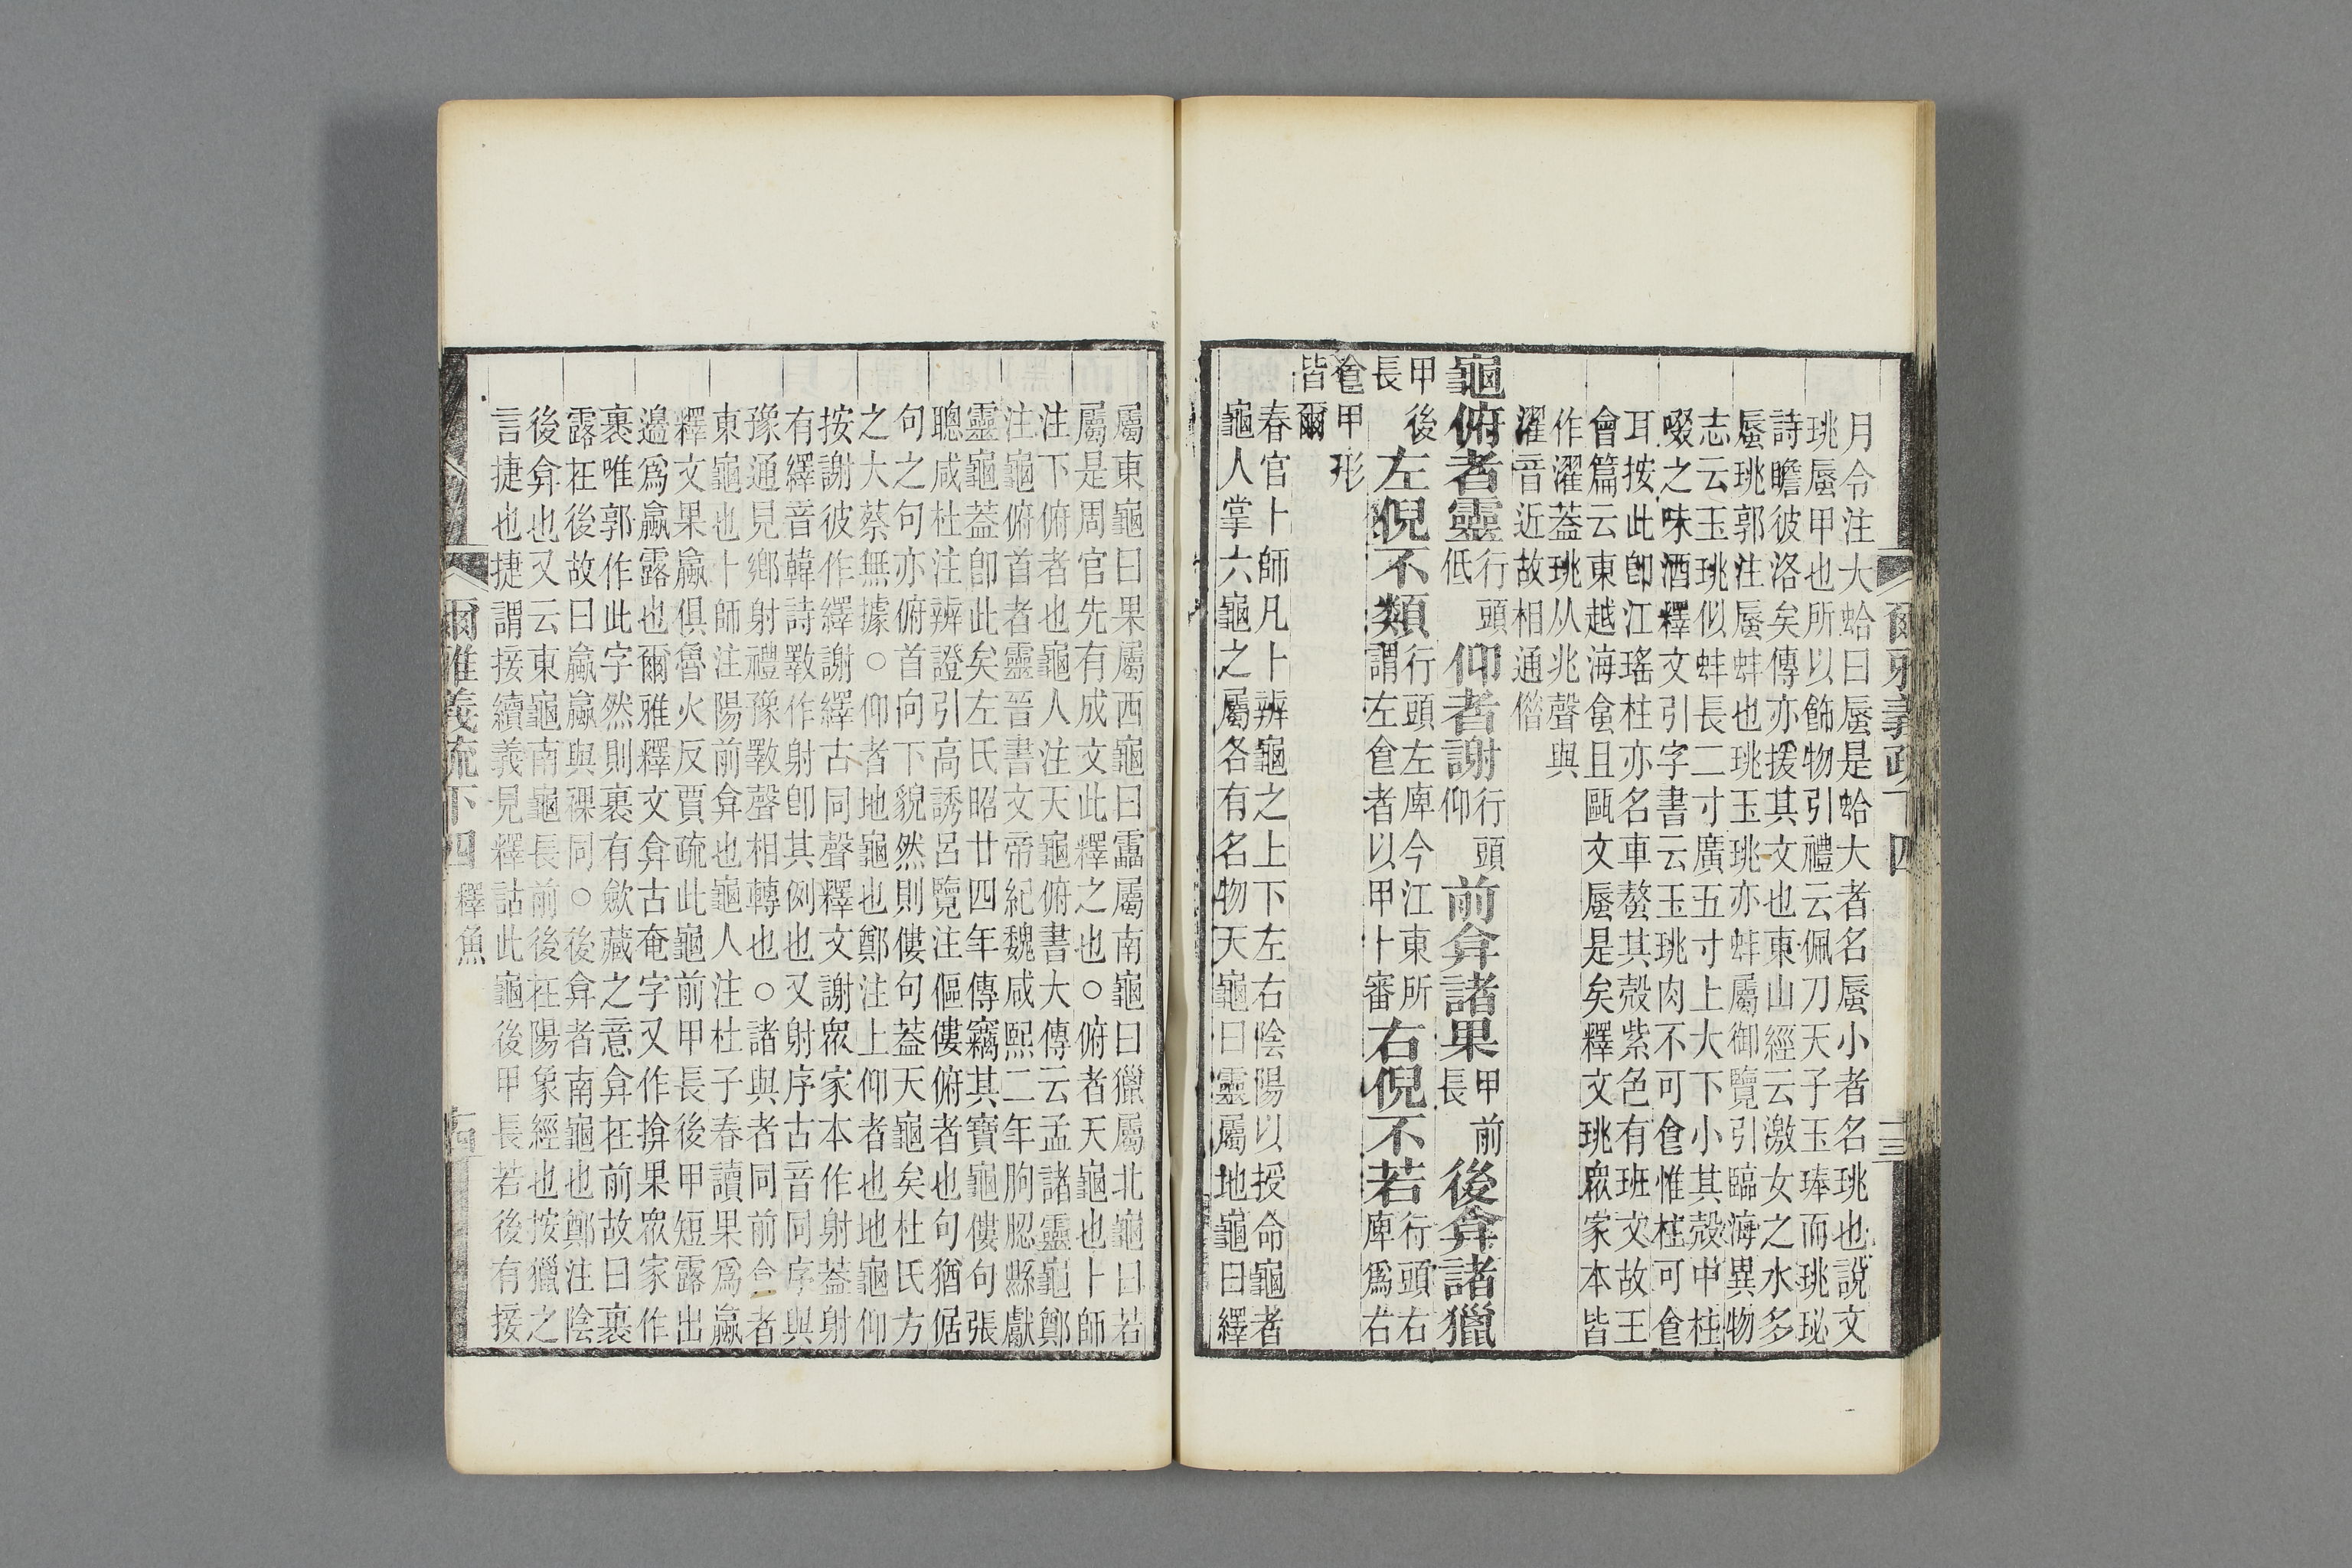 爾雅義疏下四 十三
月令注大蛤曰蜃是蛤大者名蜃小者名珧也說文
珧蜃甲也所以飾物引禮云佩刀天子玉琫而珧珌
詩瞻彼洛矣傳亦援其文也東山經云激女之水多
蜃珧郭注蜃蚌也珧玉珧亦蚌屬御覽引臨海異物
志云玉珧似蚌長二寸廣五寸上大下小其殼中柱
啜之味酒釋文引字書云玉珧肉不可食惟柱可食
耳按此卽江瑤柱亦名車螯其殼紫色有班文故王
會篇云東越海蛤且甌文蜃是矣釋文珧眾家本皆
作濯蓋珧从兆聲與
濯音近故相通偕
龜俯者靈行頭低仰者謝行頭仰前弇諸果甲前長後弇諸獵
甲後長左倪不類行頭左庳今江東所謂左食者以甲卜審右倪不若行頭右庳爲右
食甲形皆爾
春官卜師凡卜辨龜之上下左右陰陽以授命龜者
龜人掌六龜之屬各有名物天龜曰靈屬地龜曰繹
屬東龜曰果屬西龜曰靁屬南龜曰獵屬北龜曰若
屬是周官先有成文此釋之也○俯者天龜也卜師
注下俯者也龜人注天龜俯書大傳云孟諸靈龜鄭
注龜俯首者靈晉書文帝紀魏咸熙二年朐䏰縣獻
靈龜蓋卽此矣左氏昭廿四年傳竊其寶龜僂句張
聰咸杜注辨證引高誘呂覽注傴僂俯者也句猶倨
句之句亦俯首向下貌然則僂句蓋天龜矣杜氏方
之大蔡無據○仰者地龜也鄭注上仰者也地龜仰
按謝彼作繹謝繹古同聲釋文謝眾家本作射蓋射
有繹音韓詩斁作射卽其例也又射序古音同序與
豫通見鄉射禮豫斁聲相轉也○諸與者同前弇者
東龜也卜師注陽前弇也龜人注杜子春讀果爲臝
釋文果臝俱魯火反賈疏此龜前甲長後甲短露出
邉爲臝露也爾雅釋文弇古奄字又作揜果眾家作
裹唯郭作此字然則裹有歛藏之意弇在前故曰裹
露在後故曰臝臝與裸同○後弇者南龜也鄭注陰
後弇也又云東龜南龜長前後在陽象經也按獵之
言捷也捷謂接續義見釋詁此龜後甲長若後有接
爾雅義疏下四 釋魚 十四